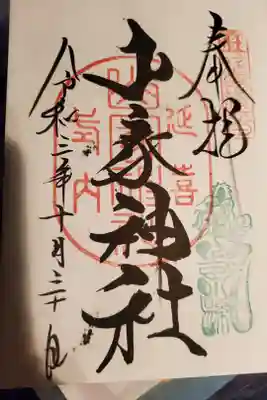 奉拝
延喜
山家神社
式内
令和三年十月三十日